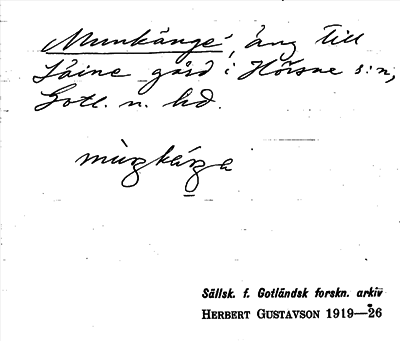 Munkänge, äng till
Läine gård i Hörsne s:n,
Gotl. n. hd.
Sällsk. f. Gotländsk forskn. arkiv
HERBERT GUSTAVSON 1919—26